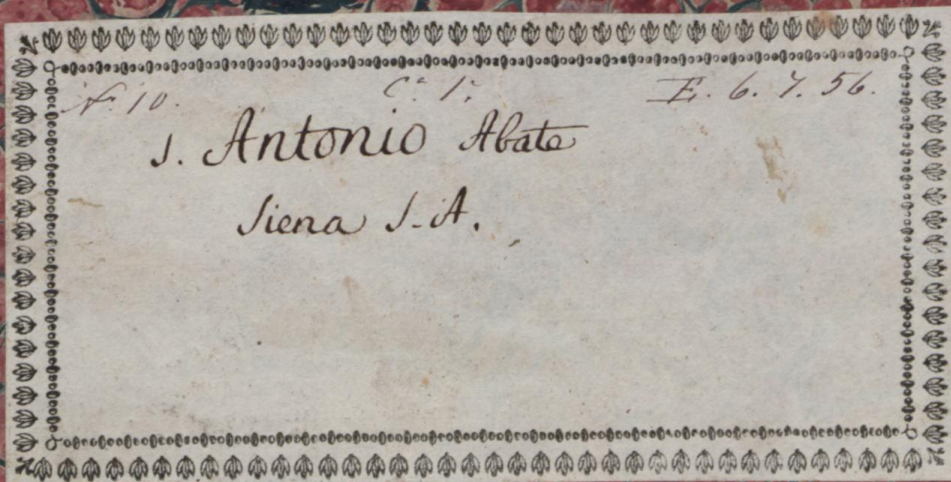 N. 10. C.a 1.a E. 6. 7. 56.
S. Antonio Abate
Siena S. A.